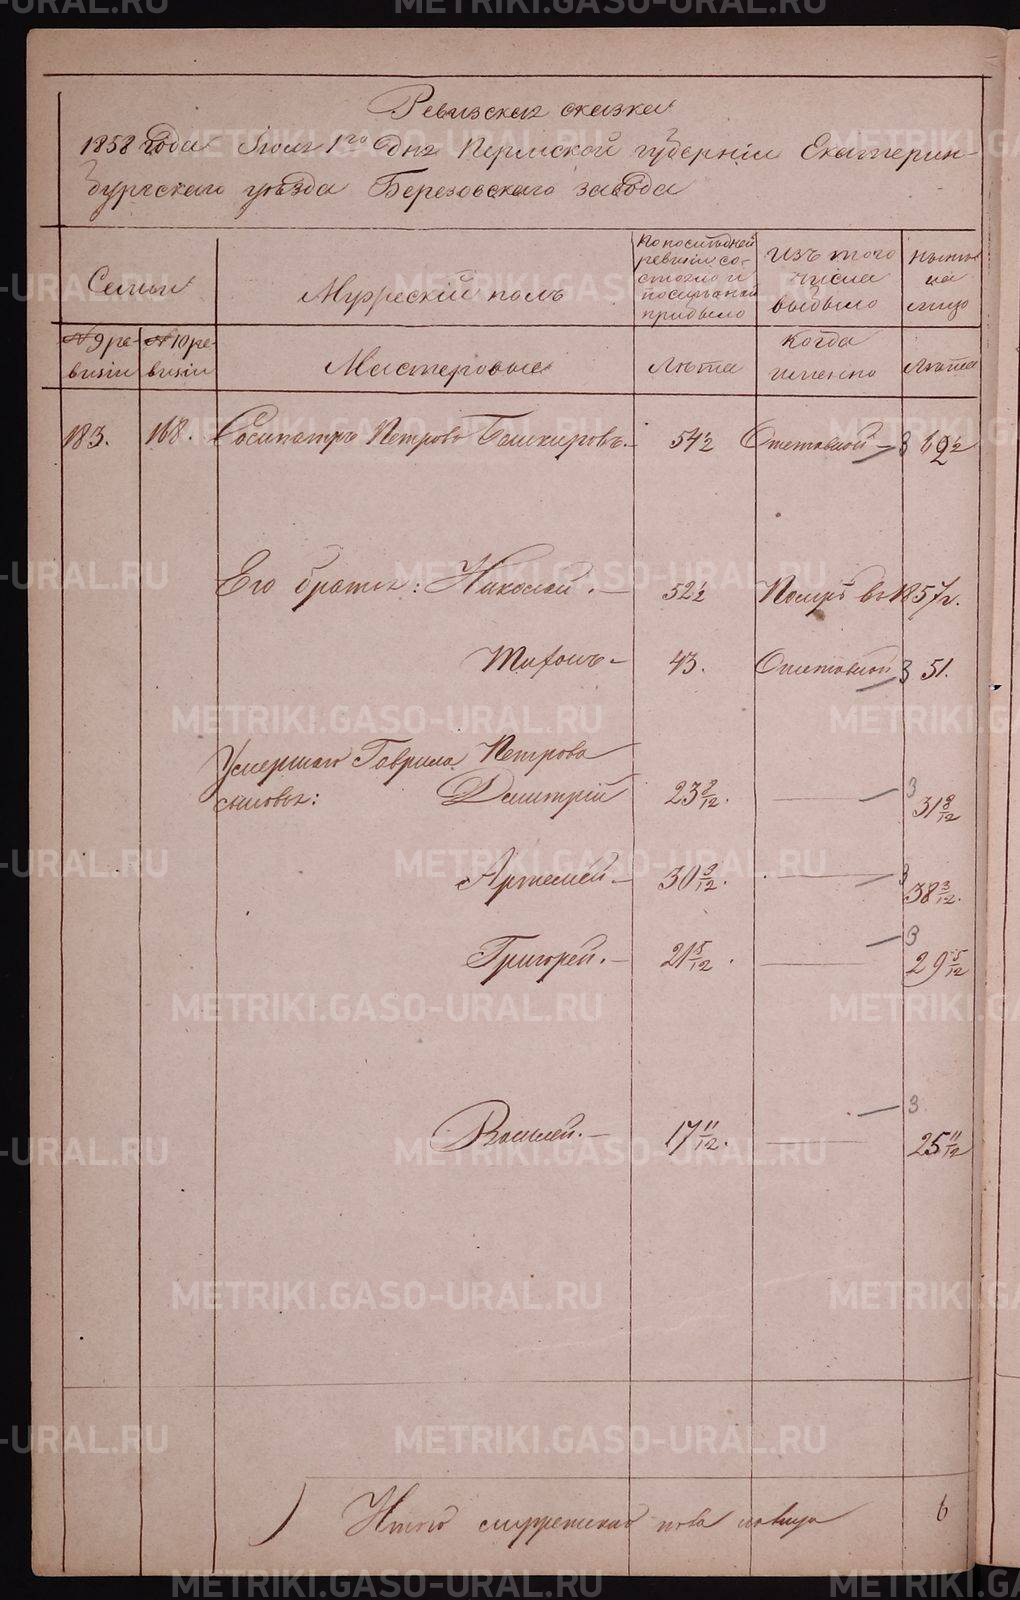 Ревизская сказка
1858 года Іюля 1го дня Пермской губерніи Екатерин-
бургскаго уѣзда Березовскаго завода
Семьи
Мужескій полъ
По послѣдней
ревизіи со-
стояло и
послѣ оной
прибыло
Изъ того
числа
выбыло
Нынѣ
на
лицо
№ 9 ре-
визіи
№ 10 ре-
визіи
Мастеровые
Лѣта
Когда
именно
Лѣта
183. 168. Сосипатръ Петровъ Башкировъ.- 54½ Отставной - 3 62½
Его братья: Николай.- 52½ Померъ въ 1857 г.
Тихонъ- 43. Отставной 3 51.
Умершаго Гаврила Петрова
сыновья: Дмитрій 23 8/12. 3 31 8/12
Артемей- 30 3/12. 3 38 3/12.
Григорей.- 21 5/12. 3 29 5/12
Василей.- 17 11/12. 3. 25 11/12
Итого мужескаго пола на лицо 6
METRIKI.GASO-URAL.RU